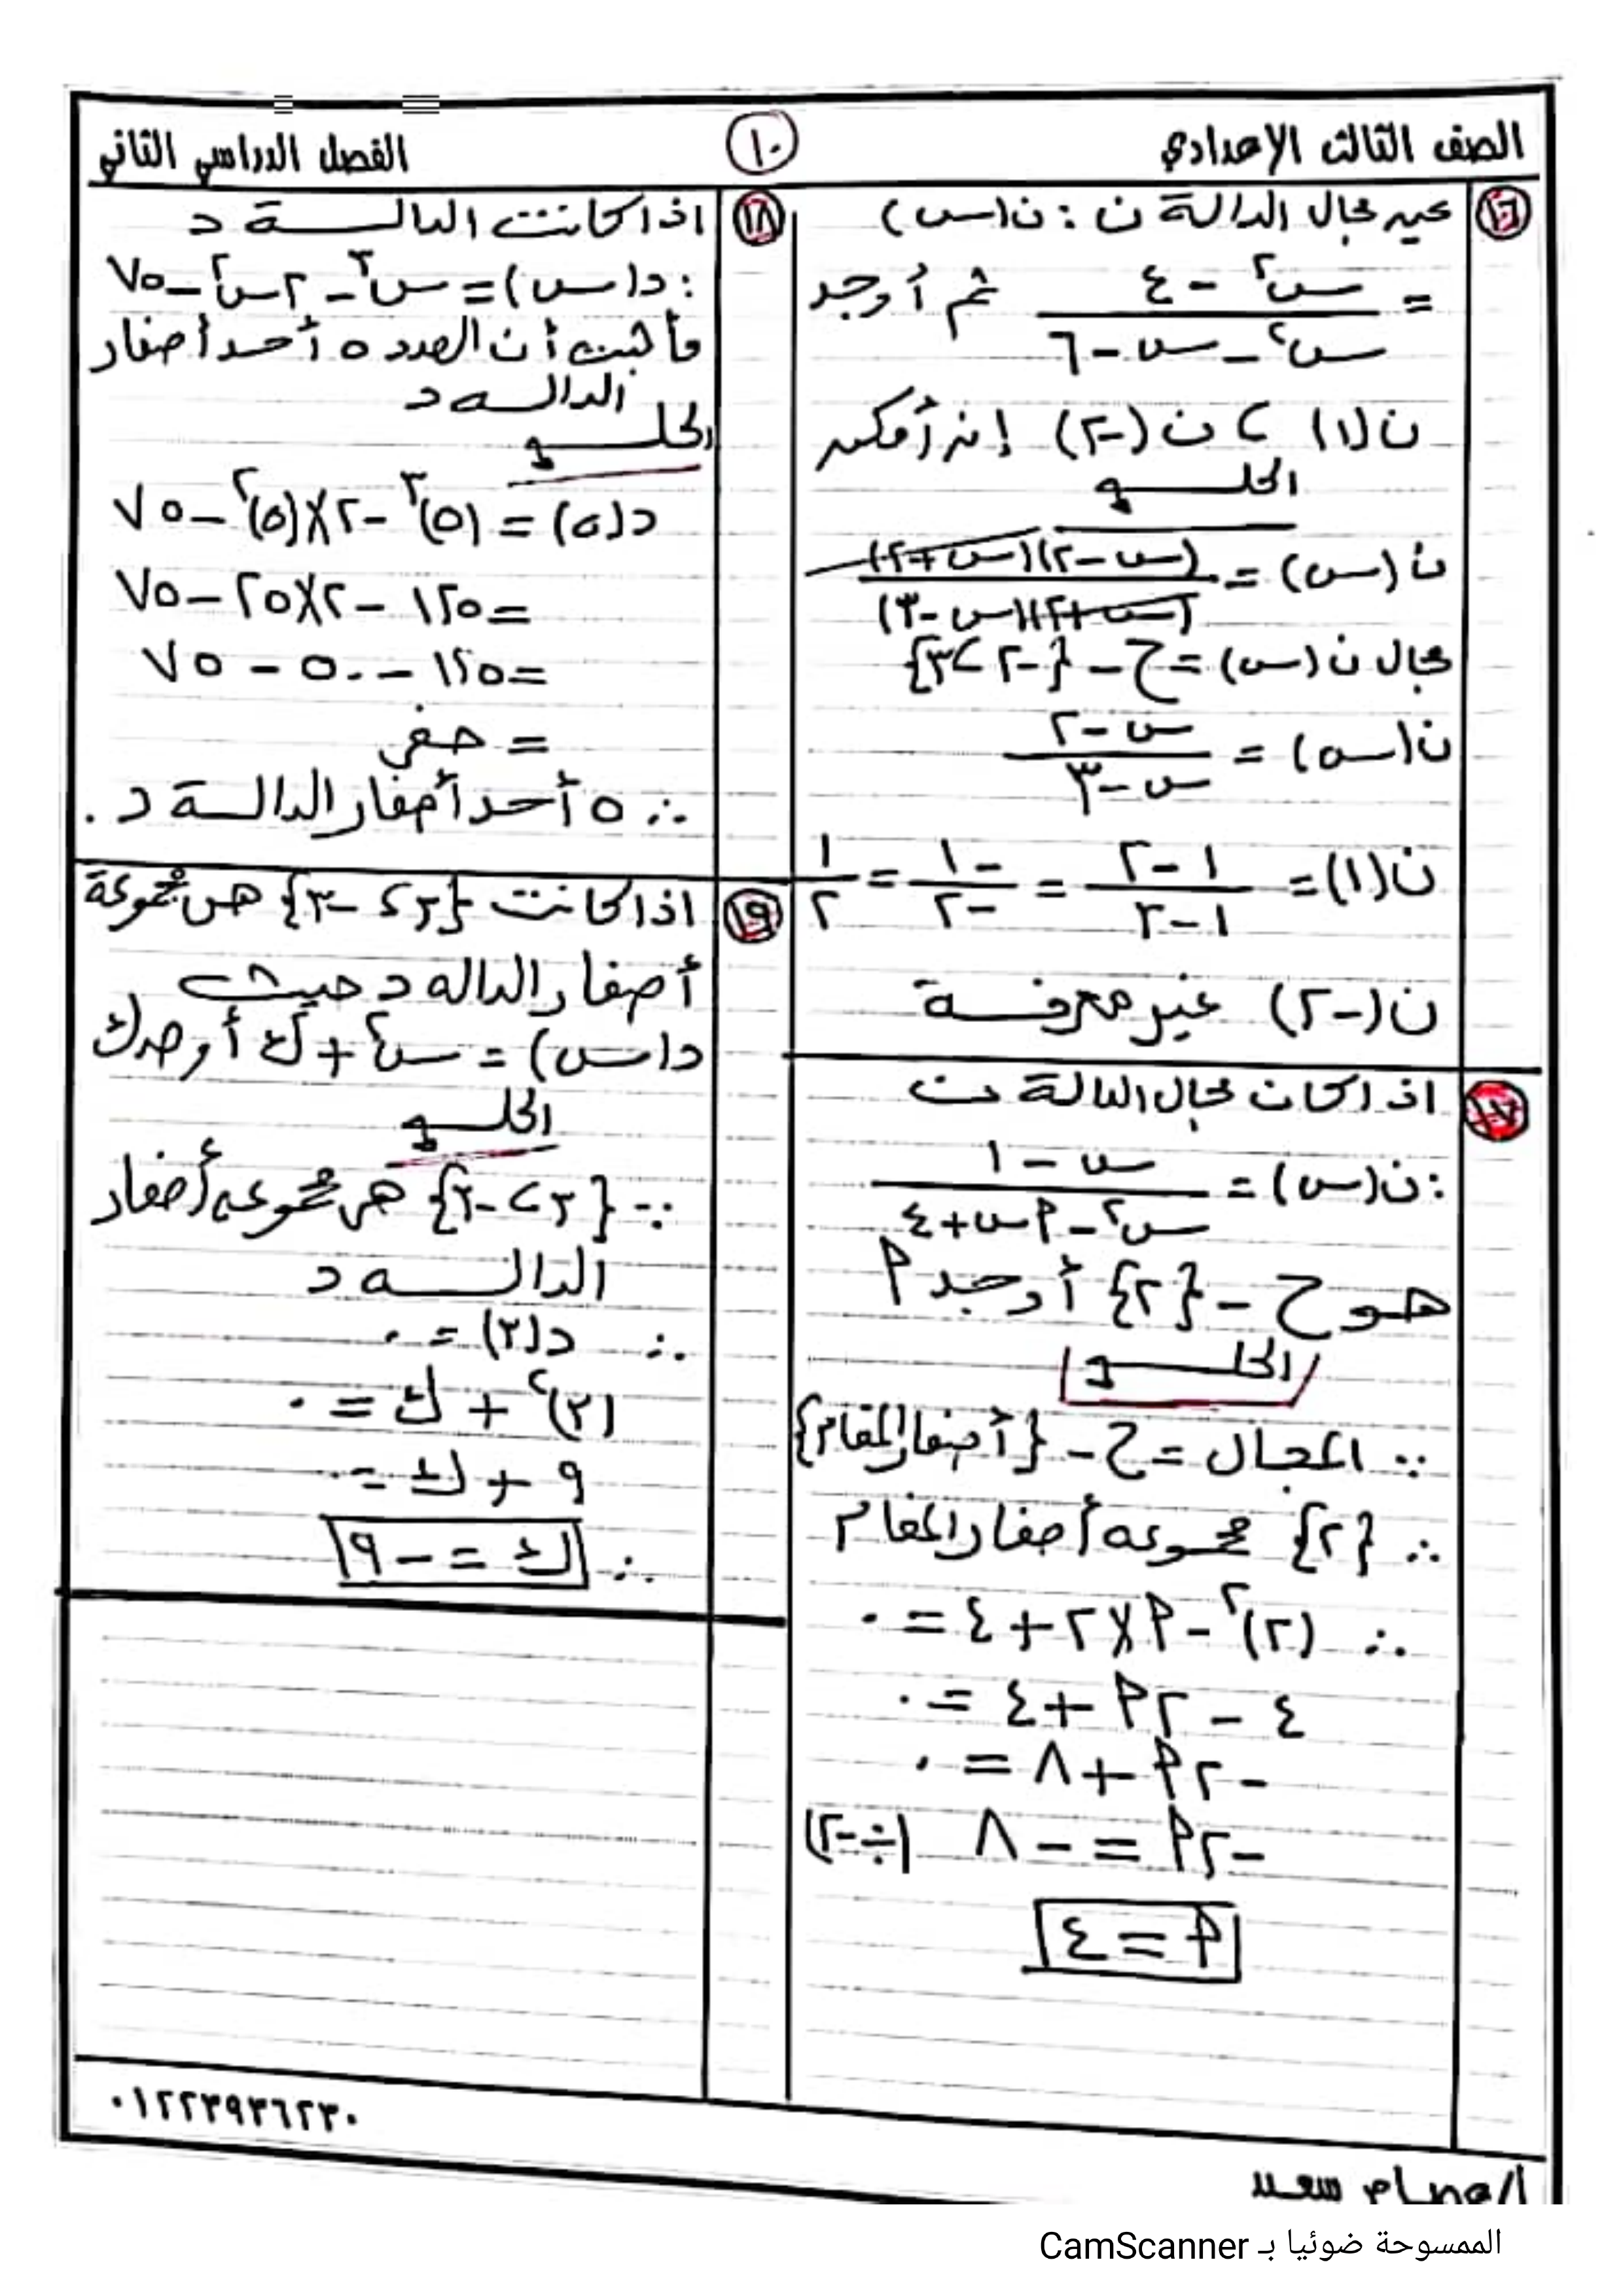 الصف الثالث الإعدادي
١٠
الفصل الدراسي الثاني
١٦
عين مجال الدالة ن : ن(س)
= (س² - ٤) / (س² - س - ٦) ثم أوجد
ن(١) ، ن(-٢) إن أمكن
الحل
ن(س) = (س-٢)(س+٢) / (س+٢)(س-٣)
مجال ن(س) = ح - {-٢ ، ٣}
ن(س) = (س-٢) / (س-٣)
ن(١) = (١-٢) / (١-٣) = -١ / -٢ = ١ / ٢
ن(-٢) غير معرفة
١٧
اذا كان مجال الدالة ن
: ن(س) = (س - ١) / (س² - ٩س + ٤)
هو ح - {٢} أوجد ٩
الحل
∵ المجال = ح - {أصفار المقام}
∴ {٢} مجموعه أصفار المقام
∴ (٢)² - ٩×٢ + ٤ = ٠
٤ - ٢٩ + ٤ = ٠
-٢٩ + ٨ = ٠
-٢٩ = -٨ (÷-٢)
٩ = ٤
١٨
اذا كانت الدالة د
: د(س) = س³ - ٢س² - ٧٥
فأثبت أن العدد ٥ أحد أصفار
الداله د
الحل
د(٥) = (٥)³ - ٢×(٥)² - ٧٥
= ١٢٥ - ٢×٢٥ - ٧٥
= ١٢٥ - ٥٠ - ٧٥
= صفر
∴ ٥ أحد أصفار الدالة د .
١٩
اذا كانت {٣ ، -٣} هى مجموعة
أصفار الداله د حيث
د(س) = س² + ك أوجد ك
الحل
∵ {٣ ، -٣} هى مجموعه أصفار
الداله د
∴ د(٣) = ٠
(٣)² + ك = ٠
٩ + ك = ٠
∴ ك = -٩
٠١٢٢٣٩٣٦٢٣٠
أ/عصام سعد
الممسوحة ضوئيا بـ CamScanner